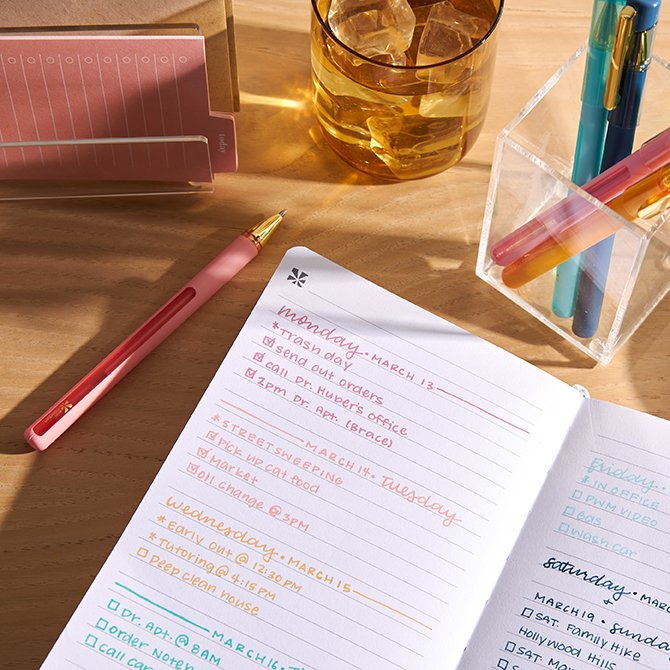 today
monday • MARCH 13
*Trash day
☑ send out orders
☑ call Dr. Huber's office
☑ 2pm Dr. Apt. (Brace)
MARCH 14 • Tuesday
* STREET SWEEPING
☑ Pick up cat food
☑ Market
☑ Oil change @ 3PM
Wednesday • MARCH 15
* Early out @ 12:30 PM
* Tutoring @ 4:15 PM
☐ Deep clean house
MARCH 16 •
☐ Dr. Apt. @ 8AM
☐ order
☐ call
Friday •
* IN OFFICE
☐ PWM VIDEO
☐ Gas
☐ wash car
saturday •
MARCH 19 •
☐ SAT. Family Hike
Hollywood Hills
☐ SAT.